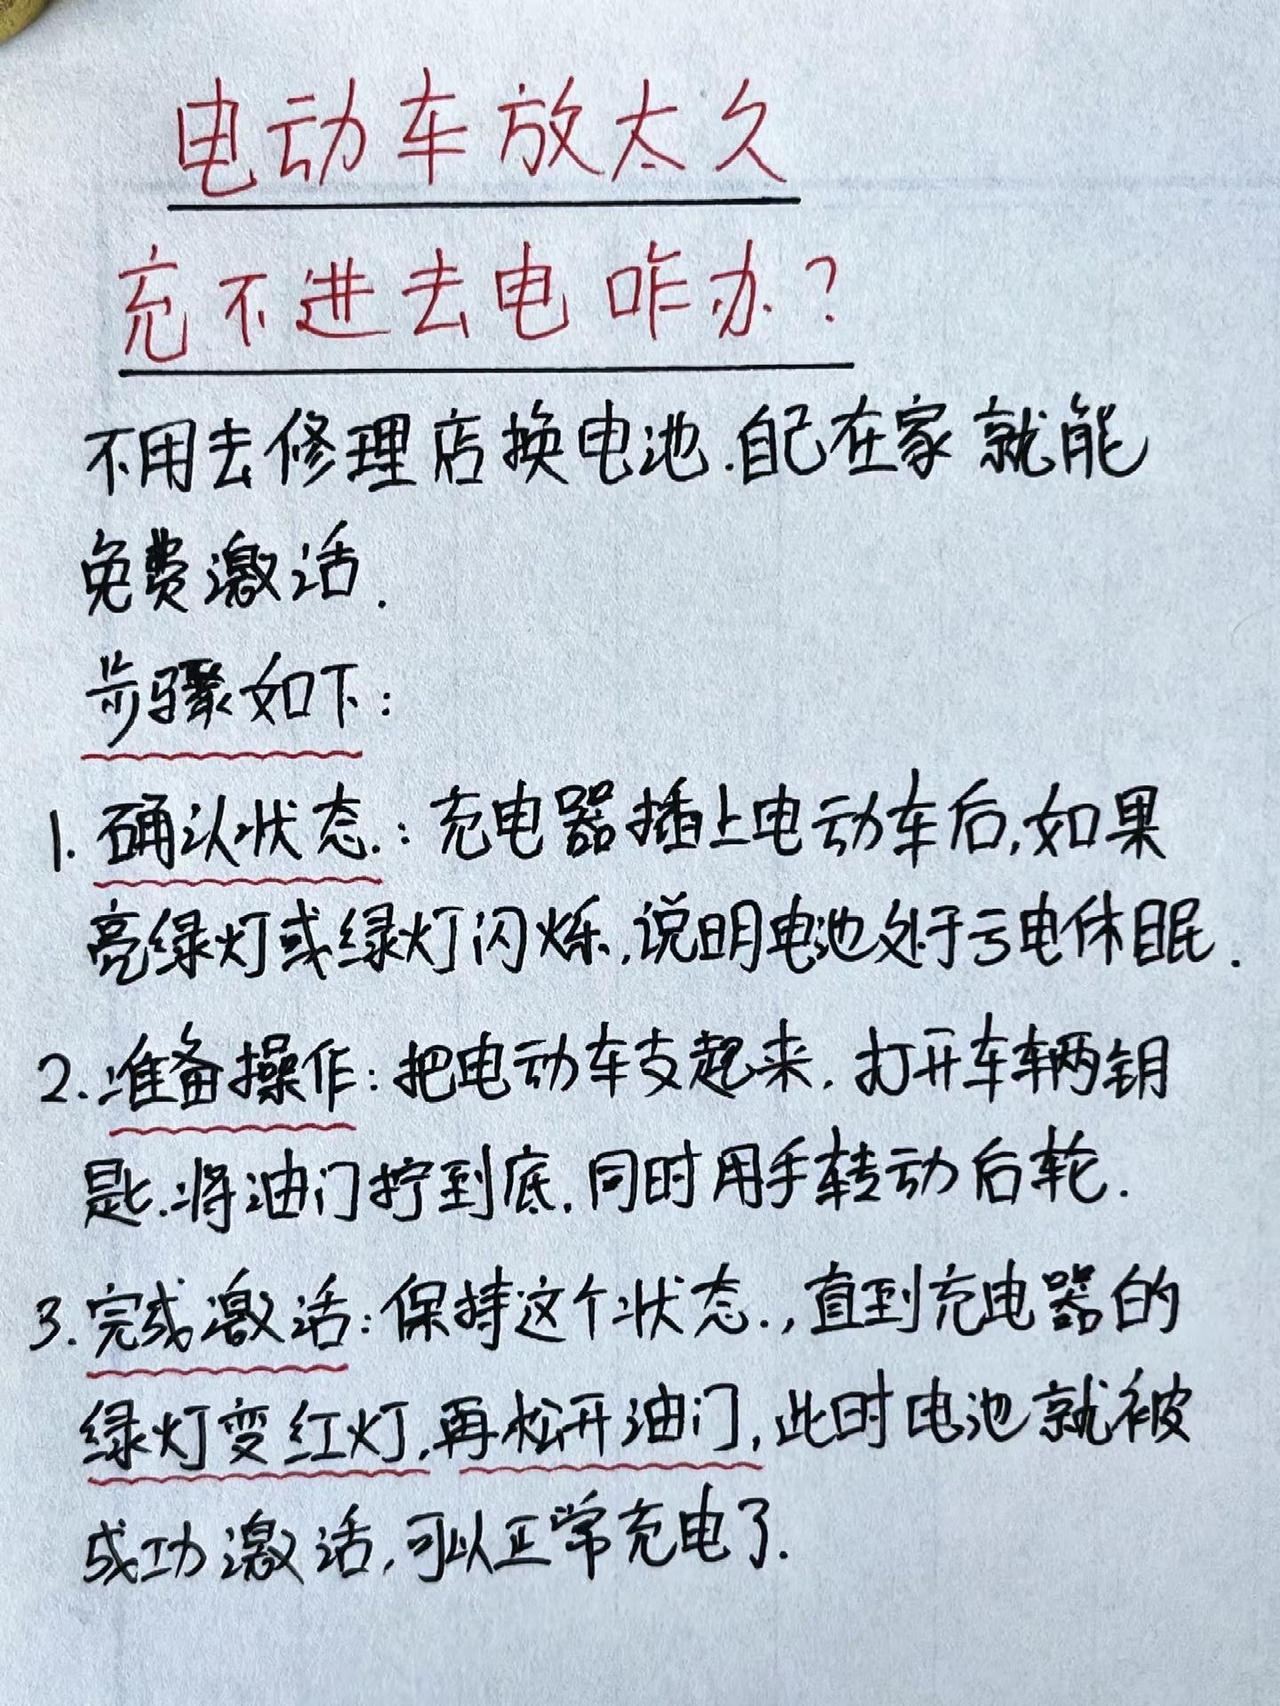 电动车放太久
充不进去电咋办?
不用去修理店换电池.自己在家就能
免费激活.
步骤如下:
1.确认状态.:充电器插上电动车后,如果
亮绿灯或绿灯闪烁,说明电池处于亏电休眠.
2.准备操作:把电动车支起来,打开车辆钥
匙.将油门拧到底.同时用手转动后轮.
3.完成激活:保持这个状态.,直到充电器的
绿灯变红灯,再松开油门,此时电池就被
成功激活,可以正常充电了.